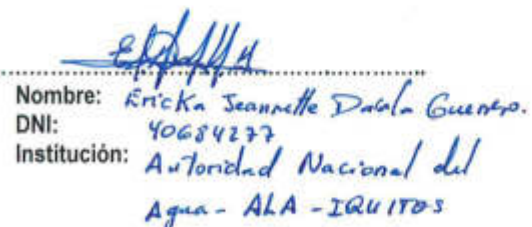 Nombre: Ericka Jeannette Davila Guerrero.
DNI: 40684277
Institución: Autoridad Nacional del
Agua - ALA - IQUITOS